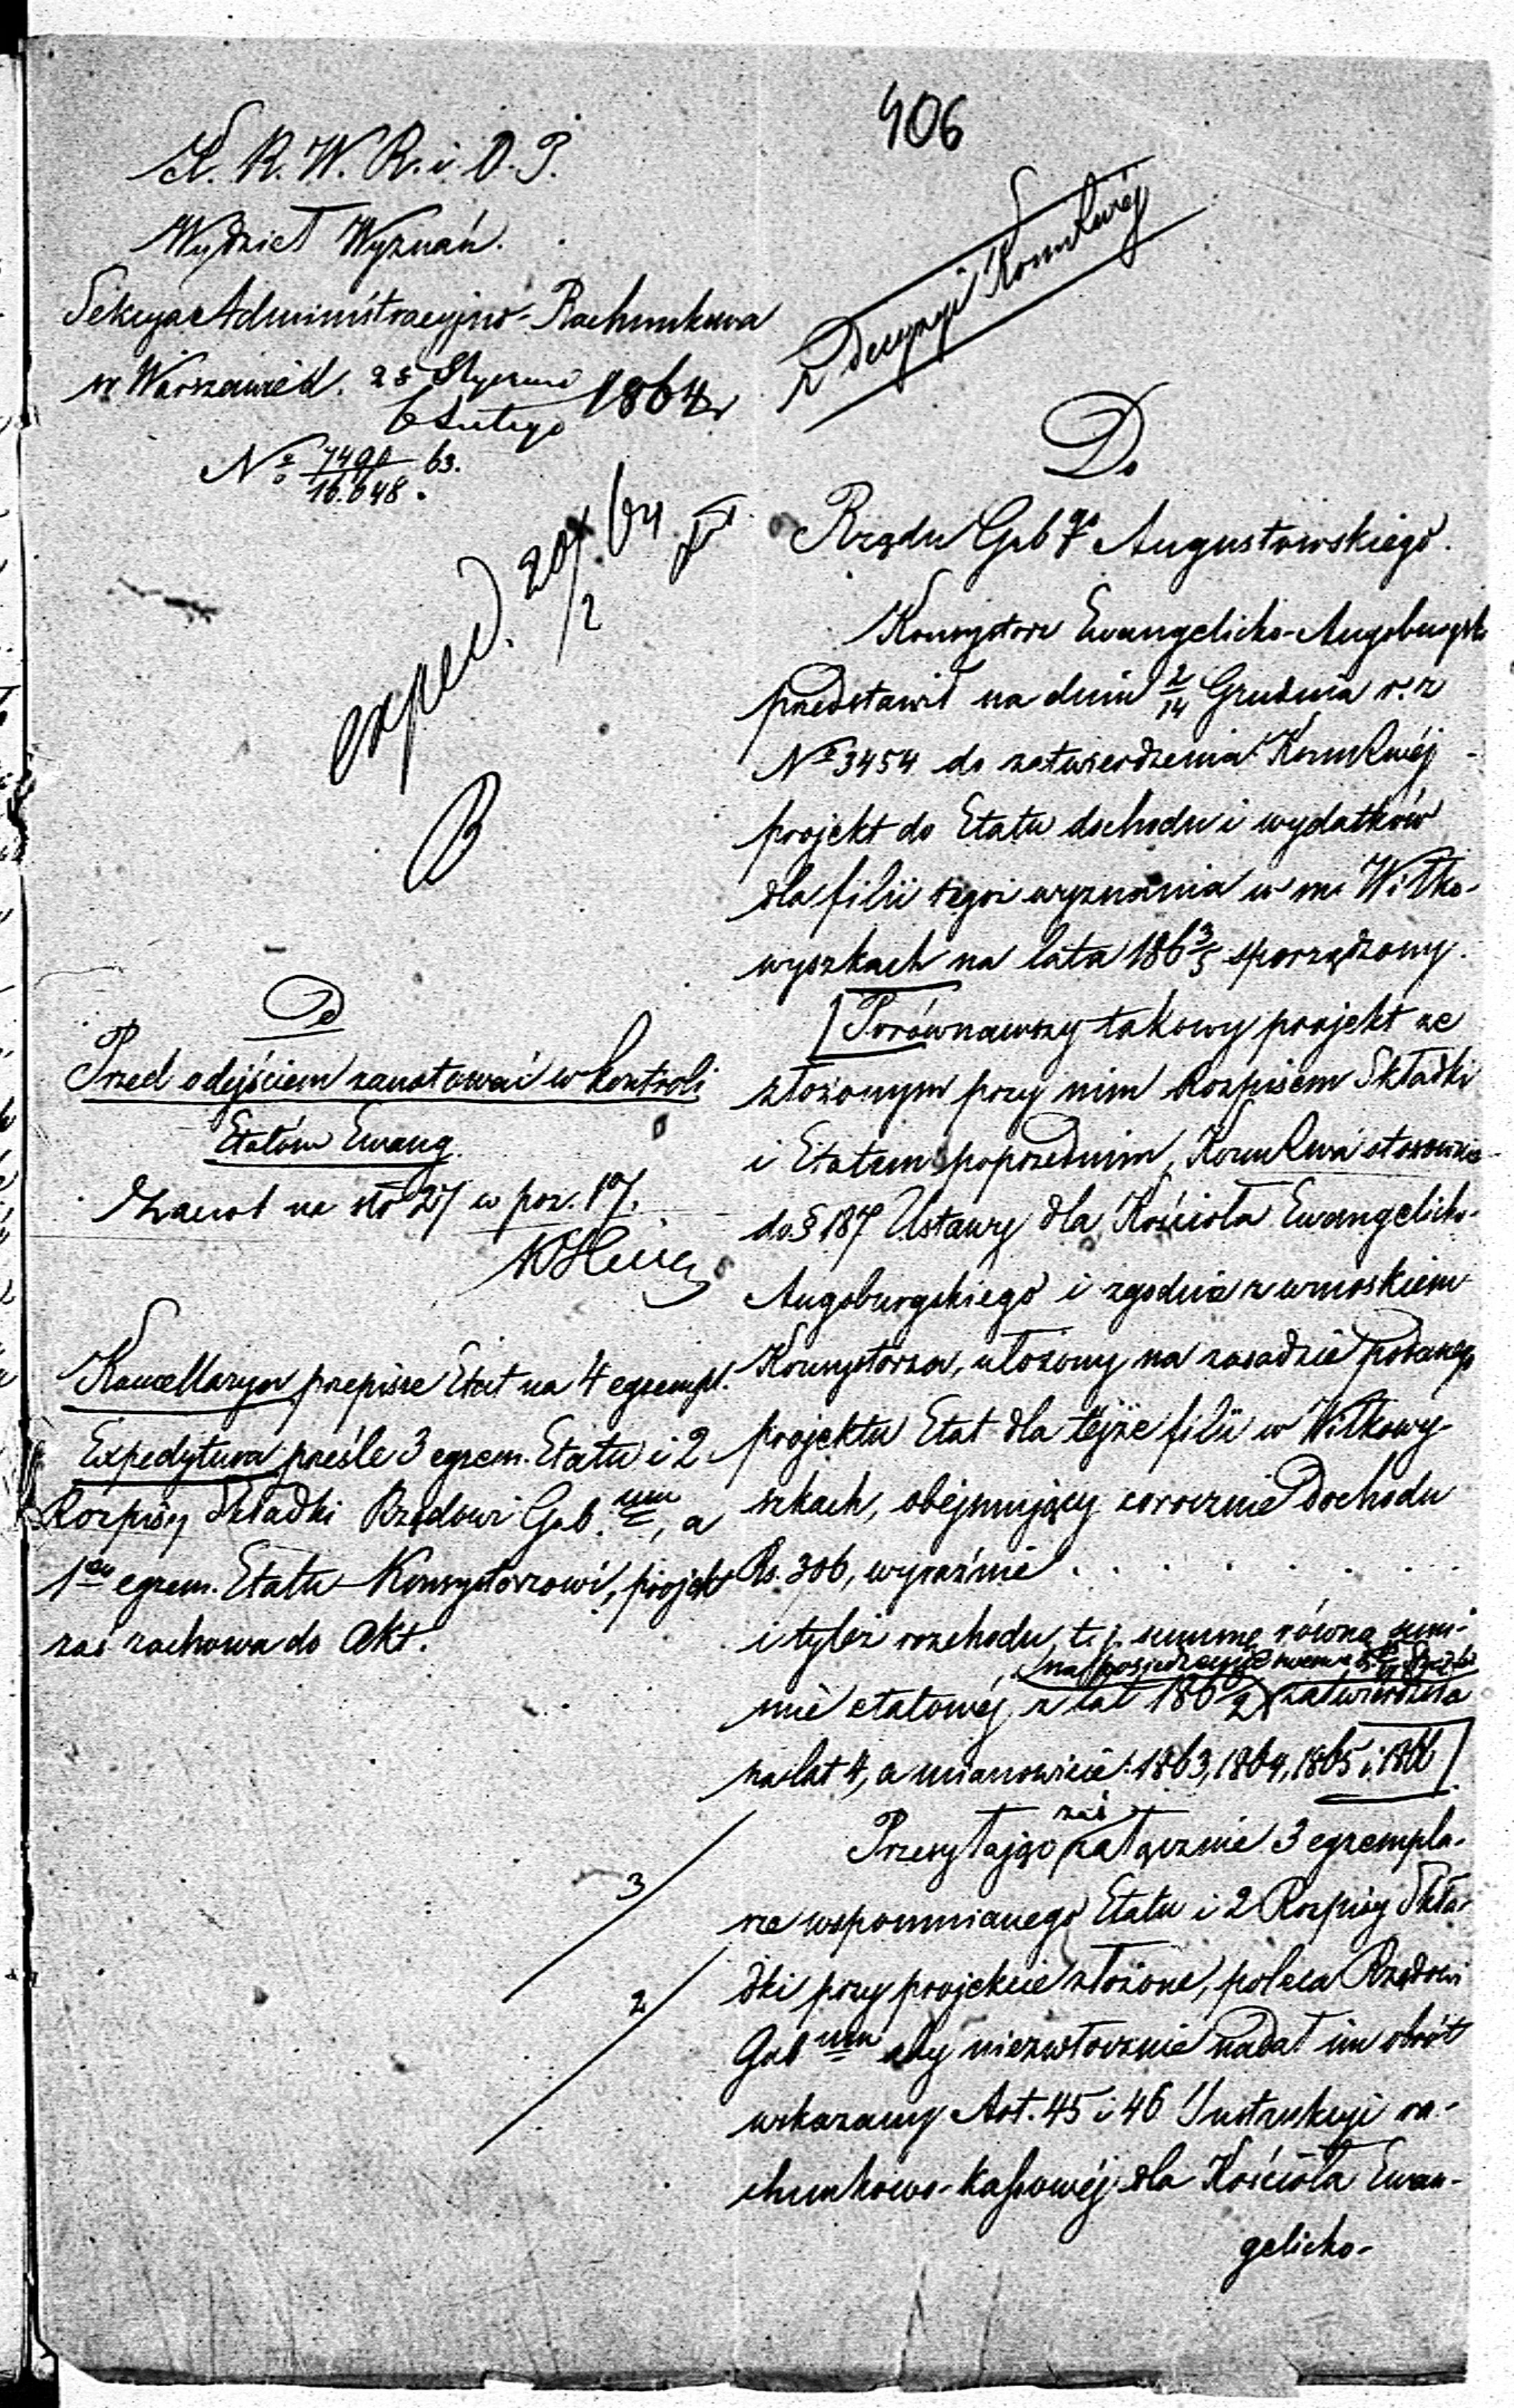 406
K. R. W. R. i O. P.
Wydział Wyznań.
Sekcya Administracyjno-Rachunkowa
w Warszawie d. 25 Stycznia
6 Lutego 1864 r
No 7490 63.
16.648.
exped. 20/2 64
z Decyzyi Kom Rwéj
Do
Rządu Gub go Augustowskiego.
Konsystorz Ewangelicko-Augsburgski
przedstawił na dniu 2/14 Grudnia r. z
No 3454 do zatwierdzenia Kom Rwéj
projekt do Etatu dochodu i wydatków
dla filii tegoż wyznania w m. Wiłko-
wyszkach na lata 186 3/5 sporządzony.
[Porównawszy takowy projekt ze
złożonym przy nim Rozpisem Składki
i Etatem poprzednim, Kom Rwa stosownie
do § 187 Ustawy dla Kościoła Ewangelicko-
Augsburgskiego i zgodnie z wnioskiem
Konsystorza, ułożony na zasadzie podanego
projektu Etat dla tejże filii w Wiłkowy-
szkach, obejmujący corocznie Dochodu
Rs. 306, wyraźnie . . . . . . .
i tyleż rozchodu, t. j. summę równą sum-
na posiedzeniu
mie etatowéj z lat 186 0/2 zatwierdziła
na lat 4, a mianowicie: 1863, 1864, 1865 i 1866]
zaś
Przesyłając załącznie 3 egzempla-
rze wspomnianego Etatu i 2 Rozpisy Skła-
dki przy projekcie złożone, poleca Rządowi
Gub mu aby niezwłocznie nadał im obrót
wskazany Art. 45 i 46 Instrukcyi ra-
chunkowo-kassowéj dla Kościoła Ewan-
gelicko-
Przed odejściem zanotować w kontroli
Etatów Ewang.
Zanot na str 27 w poz. 17.
Kancellarya przepisze Etat na 4 egzempl.
Expedytura prześle 3 egzem. Etatu i 2
Rozpisy Składki Rządowi Gub. mu, a
1en egzem. Etatu Konsystorzowi, projekt
zaś zachowa do Akt.
3
2